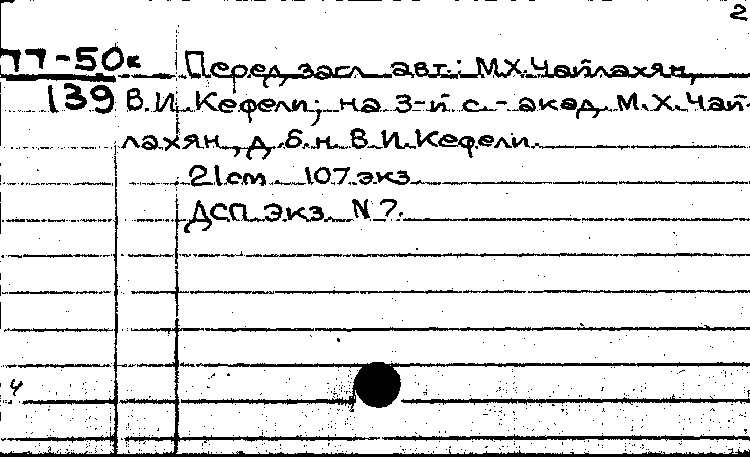 2
77-50к Перед загл. авт.: М.Х.Чайлахян,
139 В.И.Кефели; на 3-й с. - акад. М.Х.Чай-
лахян, д.б.н. В.И.Кефели.
21cm. 107 экз.
ДСП. Экз. N 7.
4